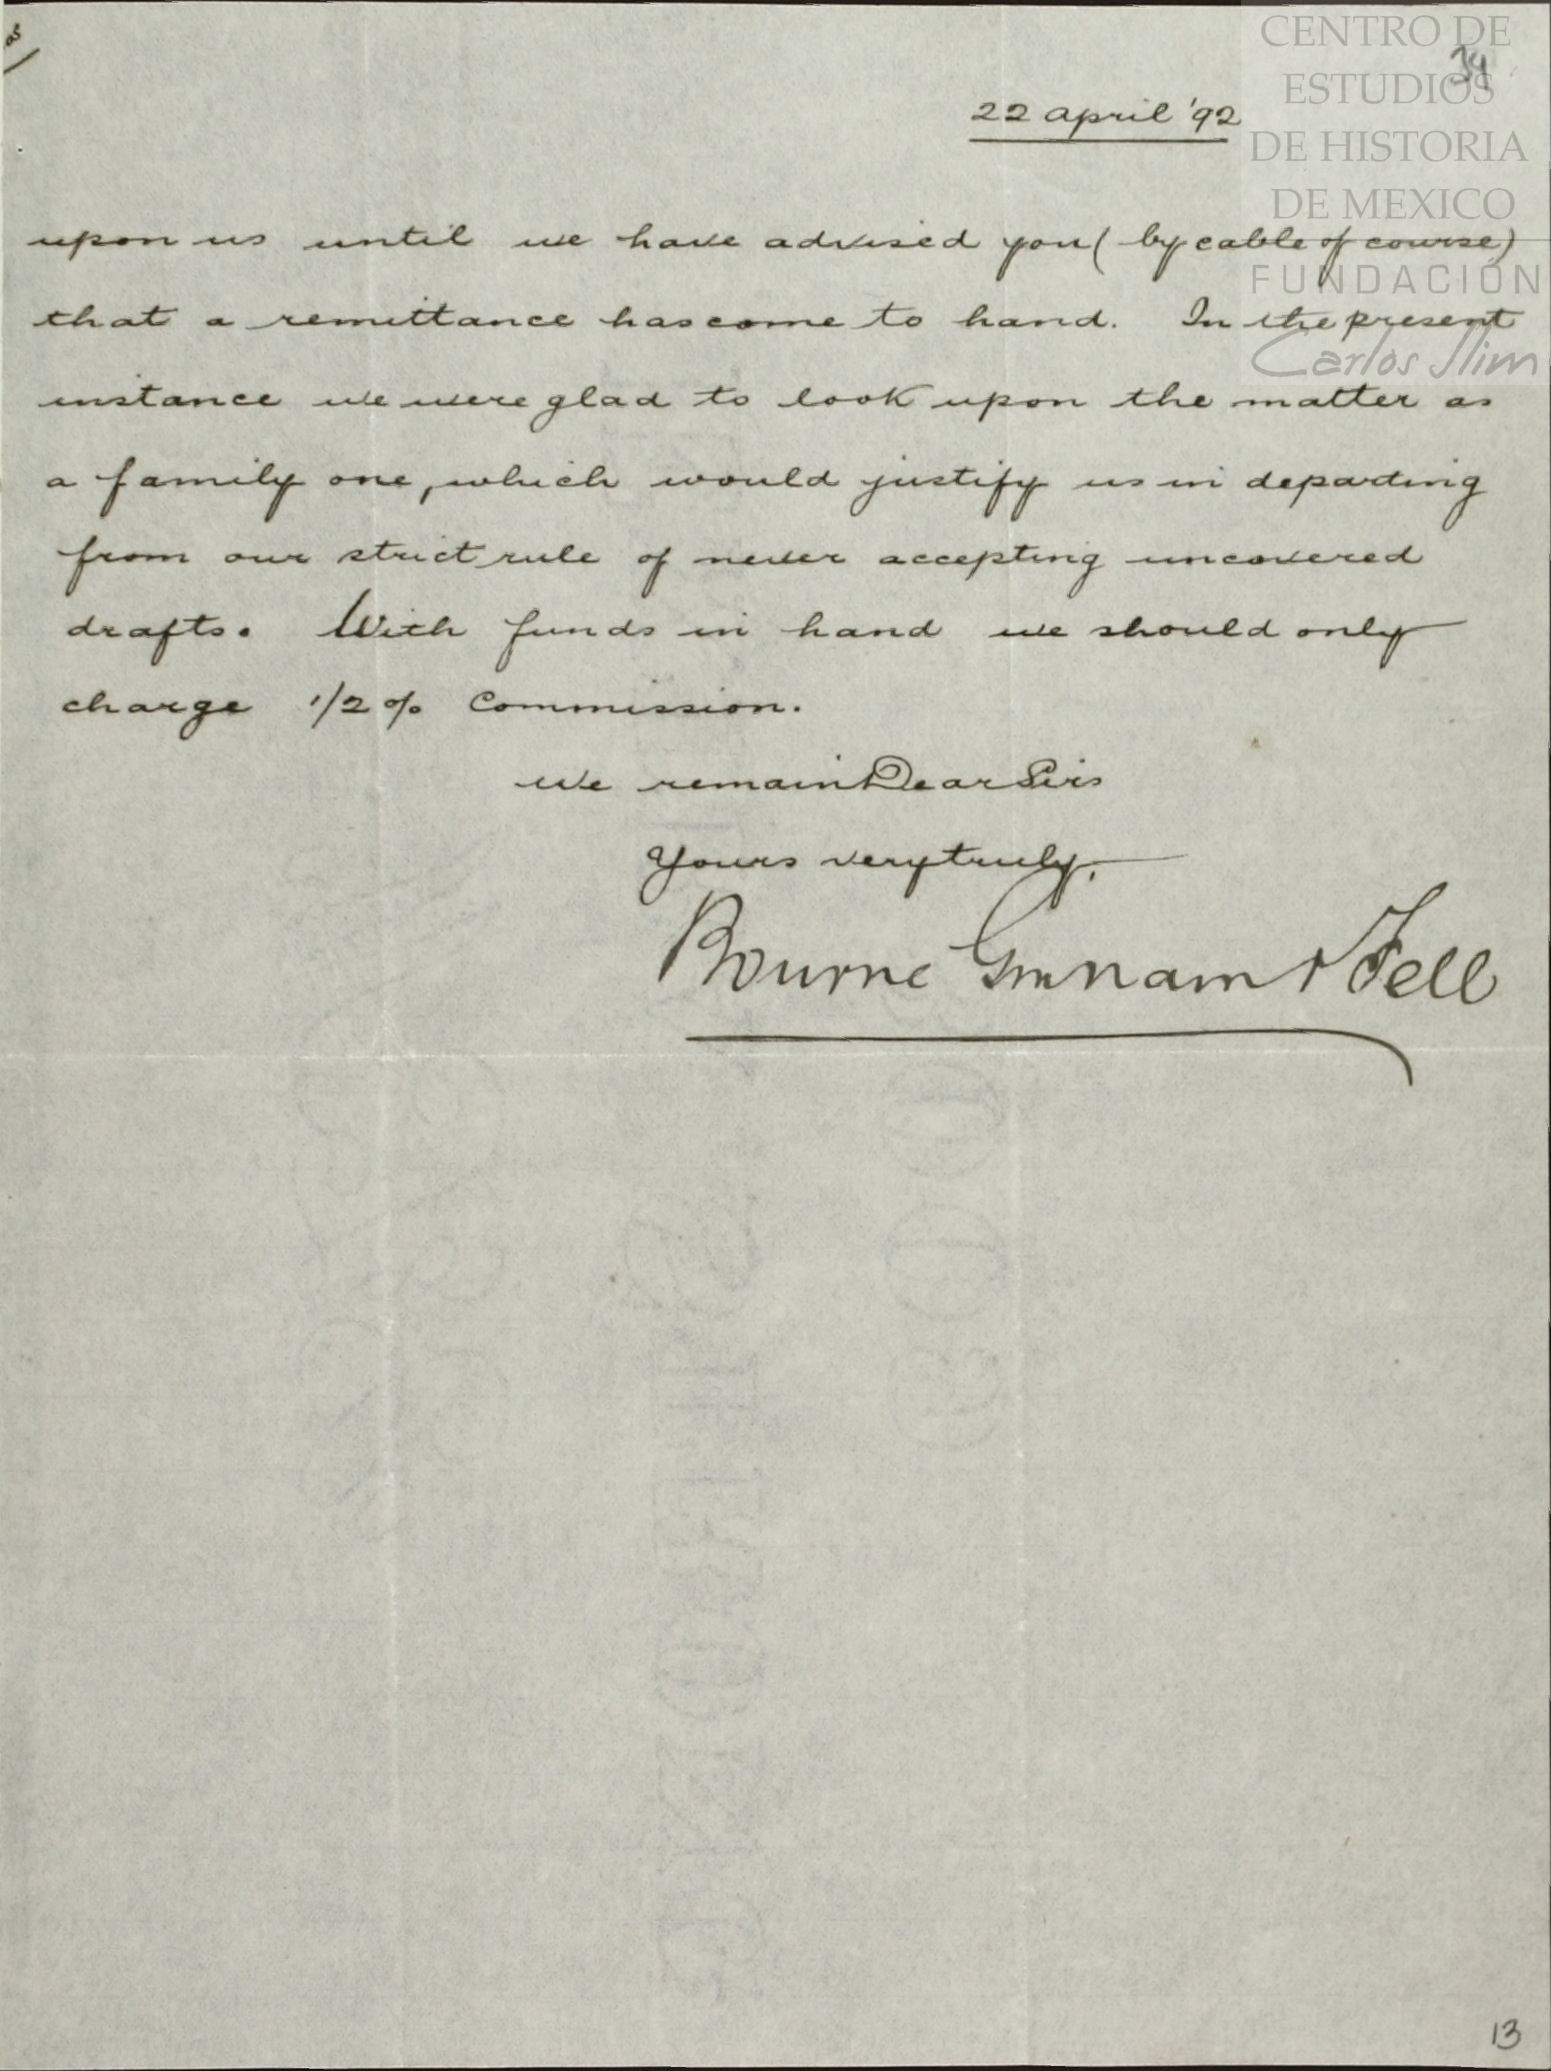 CENTRO DE
ESTUDIOS
DE HISTORIA
DE MEXICO
FUNDACIÓN
Carlos Slim
34
22 April '92
upon us until we have advised you ( by cable of course)
that a remittance has come to hand. In the present
instance we were glad to look upon the matter as
a family one, which would justify us in departing
from our strict rule of never accepting uncovered
drafts. With funds in hand we should only
charge 1/2 % Commission.
We remain Dear Sirs
Yours very truly,
Bourne & Fell
13